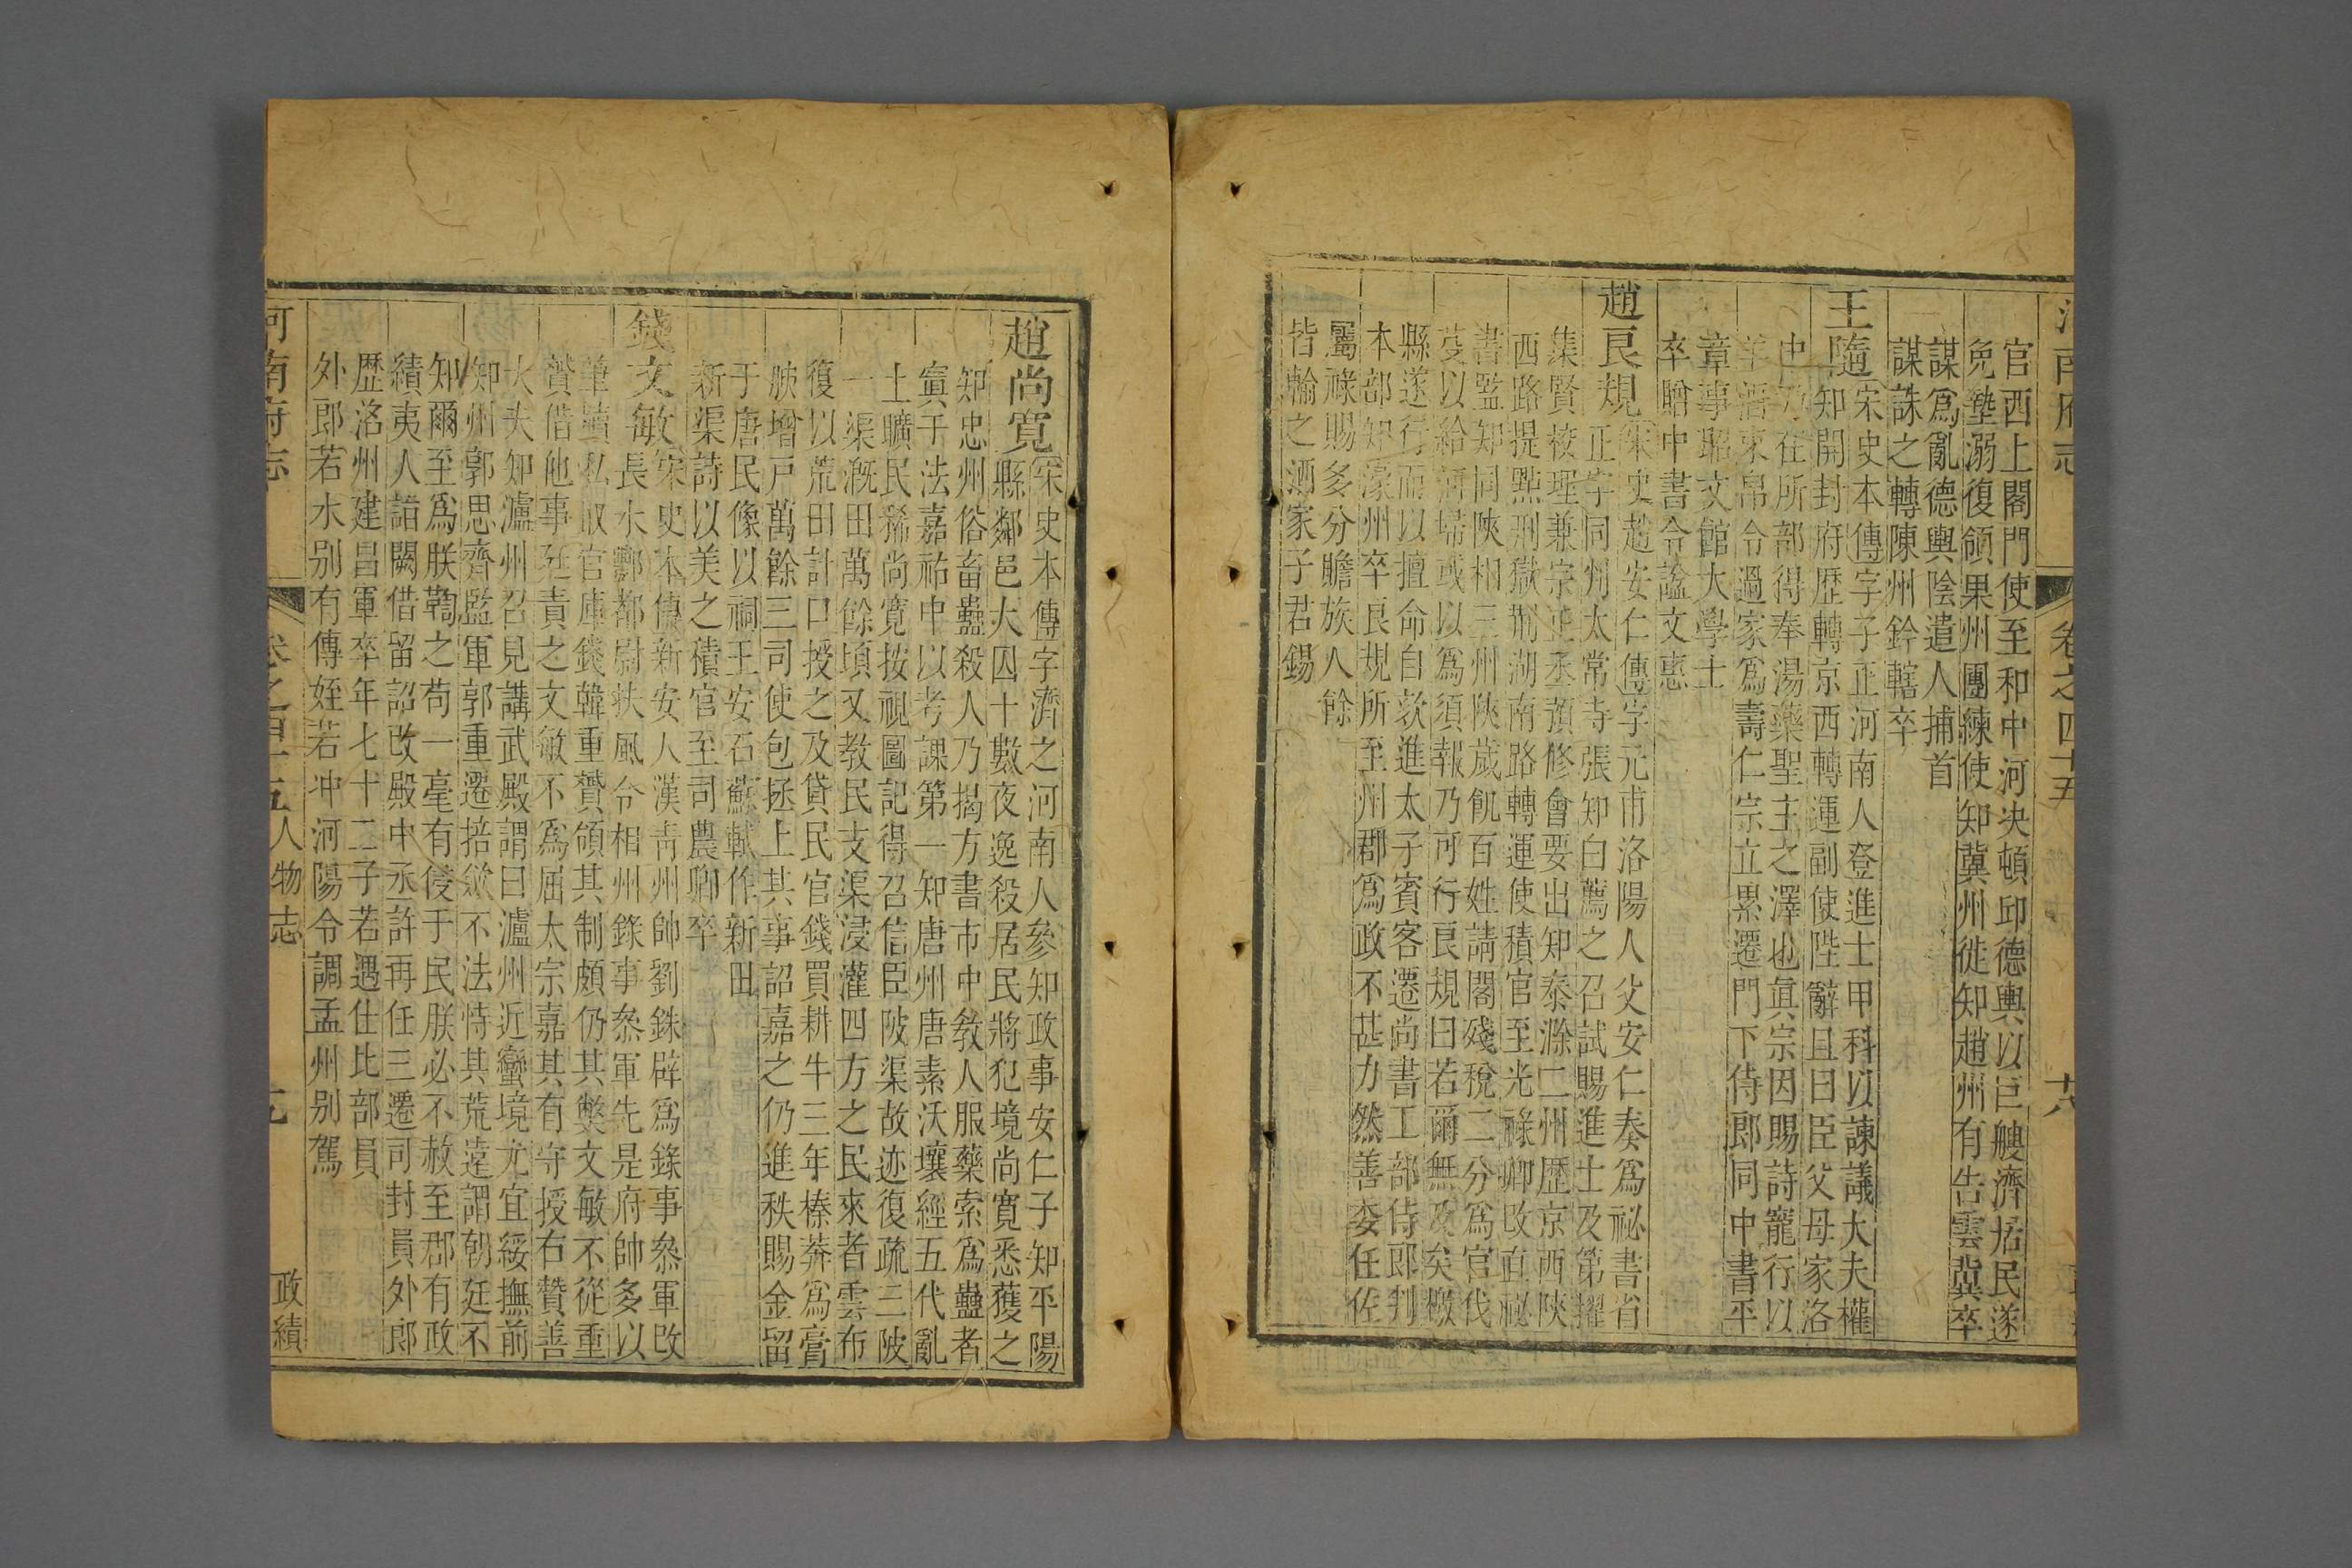 河南府志
卷之四十五
官西上閤門使至和中河决頓邱德輿以巨艘濟居民遂
免墊溺復領果州團練使知冀州徙知趙州有告雲冀卒
謀爲亂德輿陰遣人捕首
謀誅之轉陳州鈐轄卒
王隨宋史本傳字子正河南人登進士甲科以諫議大夫權
知開封府歷轉京西轉運副使陛辭且曰臣父母家洛
中乃在所部得奉湯藥聖主之澤也眞宗因賜詩寵行以
羊酒束帛令過家爲壽仁宗立累遷門下侍郎同中書平
章事昭文館大學士
卒贈中書令諡文惠
趙良規宋史趙安仁傳字元甫洛陽人父安仁奏爲祕書省
正字同判太常寺張知白薦之召試賜進士及第擢
集賢校理兼宗正丞預修會要出知泰滁二州歷京西陝
西路提點刑獄荆湖南路轉運使積官至光祿卿改直祕
書監知同陝相三州陝歲飢百姓請閣殘稅二分爲官伐
芟以給河埽或以爲須報乃可行良規曰若爾無及矣檄
縣遂行而以擅命自欬進太子賓客遷尚書工部侍郎判
本部知濠州卒良規所至州郡爲政不甚力然善委任佐
屬祿賜多分贍族人餘
皆輸之酒家子君錫
趙尚寬宋史本傳字濟之河南人參知政事安仁子知平陽
縣鄰邑大囚十數夜逸殺居民將犯境尚寬悉獲之
知忠州俗畜蠱殺人乃揭方書市中教人服藥索爲蠱者
寘于法嘉祐中以考課第一知唐州唐素沃壤經五代亂
土曠民稀尚寬按視圖記得召信臣陂渠故迹復疏三陂
一渠溉田萬餘頃又教民支渠浸灌四方之民來者雲布
復以荒田計口授之及貸民官錢買耕牛三年榛莽爲膏
腴增戸萬餘三司使包拯上其事詔嘉之仍進秩賜金留
于唐民像以祠王安石蘇軾作新田
新渠詩以美之積官至司農卿卒
錢文敏宋史本傳新安人漢靑州帥劉銖辟爲錄事叅軍改
長水酇都尉扶風令相州錄事叅軍先是府帥多以
筆牘私取官庫錢韓重贇領其制頗仍其獘文敏不從重
贇借他事廷責之文敏不爲屈太宗嘉其有守授右贊善
大夫知瀘州召見講武殿謂曰瀘州近蠻境尤宜綏撫前
知州郭思齊監軍郭重遷掊歛不法恃其荒遠謂朝廷不
知爾至爲朕鞫之苟一毫有侵于民朕必不赦至郡有政
績夷人詣闕借留詔改殿中丞許再任三遷司封員外郎
歴洛州建昌軍卒年七十二子若遇仕比部員
外郎若水別有傳姪若冲河陽令調孟州別駕
河南府志
卷之四十五人物志
政績